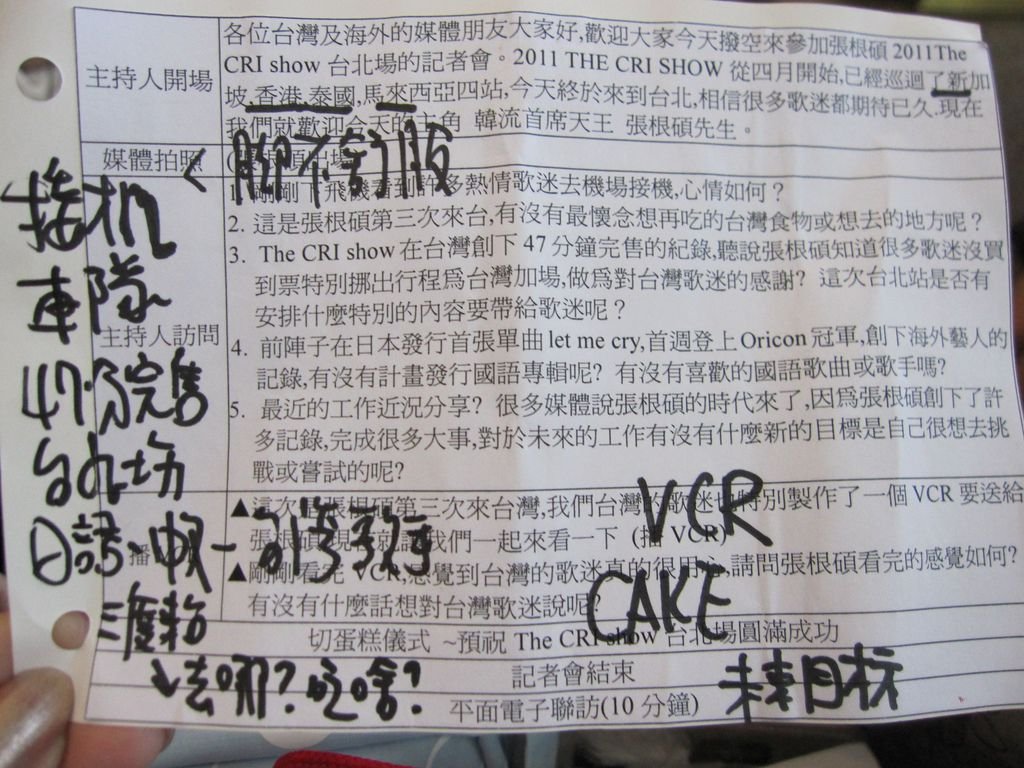 主持人開場
各位台灣及海外的媒體朋友大家好,歡迎大家今天撥空來參加張根碩 2011The
CRI show 台北場的記者會。2011 THE CRI SHOW 從四月開始,已經巡迴了新加
坡,香港,泰國,馬來西亞四站,今天終於來到台北,相信很多歌迷都期待已久.現在
我們就歡迎今天的主角 韓流首席天王 張根碩先生。
媒體拍照
< 腳不舒服
主持人訪問
1. 剛剛下飛機看到許多熱情歌迷去機場接機,心情如何？
2. 這是張根碩第三次來台,有沒有最懷念想再吃的台灣食物或想去的地方呢？
3. The CRI show 在台灣創下 47 分鐘完售的紀錄,聽說張根碩知道很多歌迷沒買
到票特別挪出行程爲台灣加場,做爲對台灣歌迷的感謝? 這次台北站是否有
安排什麼特別的內容要帶給歌迷呢？
4. 前陣子在日本發行首張單曲 let me cry,首週登上 Oricon 冠軍,創下海外藝人的
記錄,有沒有計畫發行國語專輯呢? 有沒有喜歡的國語歌曲或歌手嗎?
5. 最近的工作近況分享? 很多媒體說張根碩的時代來了,因爲張根碩創下了許
多記錄,完成很多大事,對於未來的工作有沒有什麼新的目標是自己很想去挑
戰或嘗試的呢?
接机
車隊
47分完售
台北場
日語
三度來台
↓去哪?吃啥?
播
▲這次張根碩第三次來台灣,我們台灣的歌迷也特別製作了一個 VCR 要送給
張根碩,現在就請我們一起來看一下 (播 VCR)
▲剛剛看完 VCR,感覺到台灣的歌迷真的很用心,請問張根碩看完的感覺如何?
有沒有什麼話想對台灣歌迷說呢?
VCR
CAKE
切蛋糕儀式 ~預祝 The CRI show 台北場圓滿成功
記者會結束
平面電子聯訪(10 分鐘)
未來目标